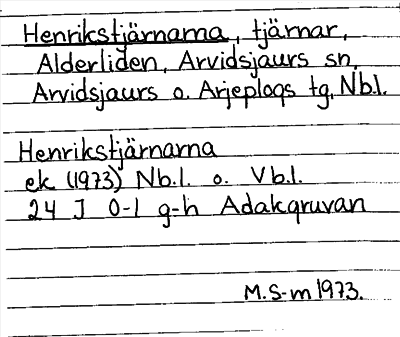 Henrikstjärnarna, tjärnar,
Alderliden, Arvidsjaurs sn,
Arvidsjaurs o. Arjeplogs tg, Nb.l.
Henrikstjärnarna
ek (1973) Nb.l. o. Vb.l.
24 J 0-1 g-h Adakgruvan
M.S-m 1973.